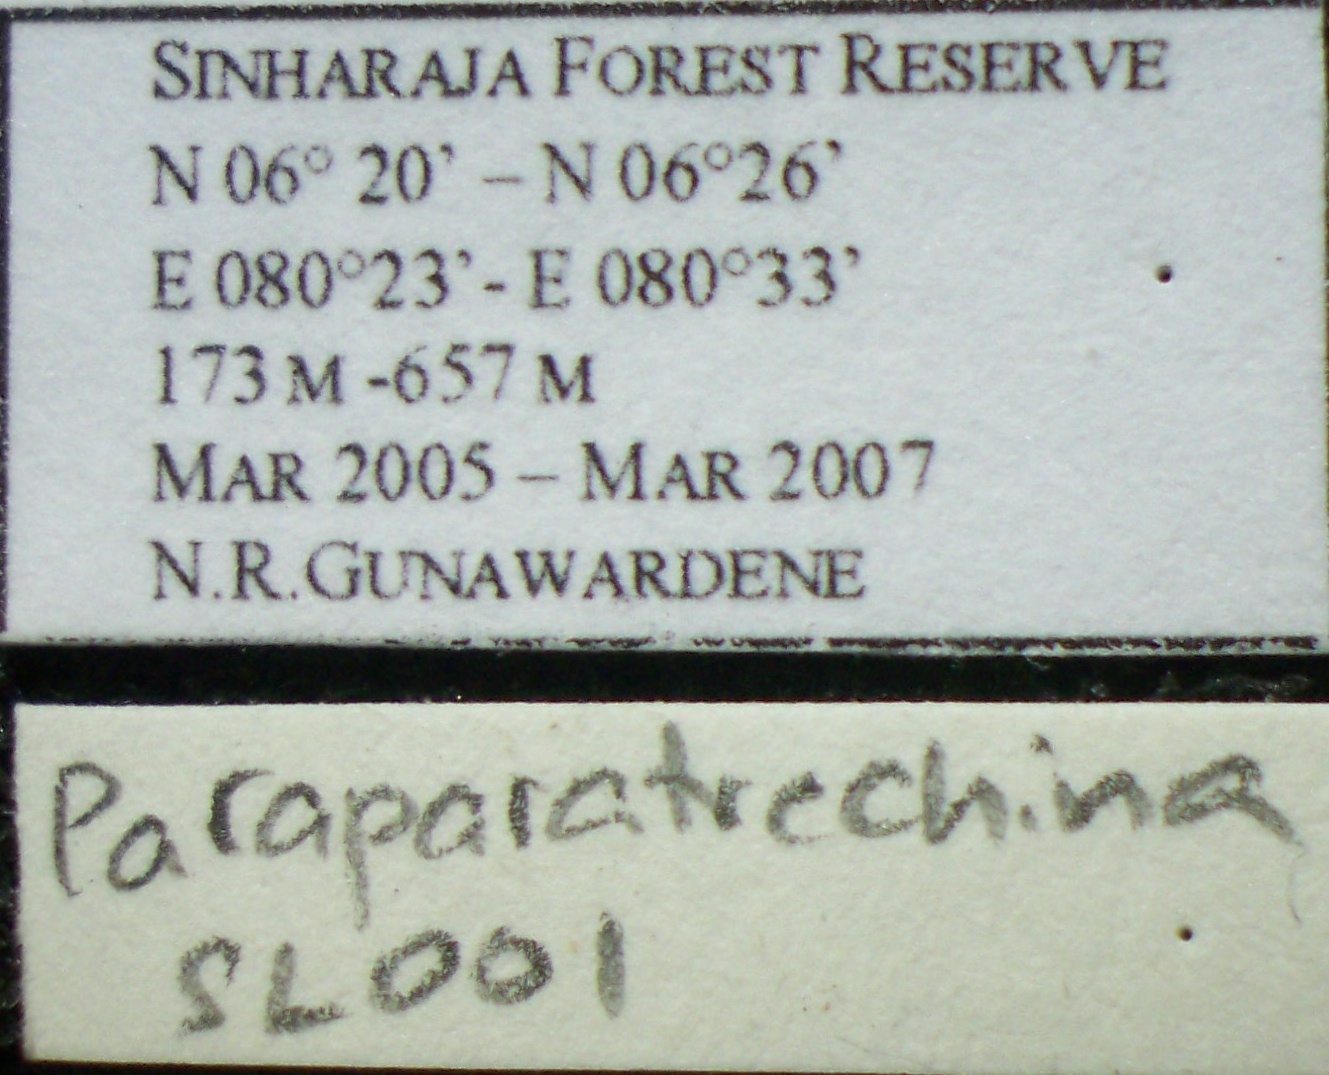 SINHARAJA FOREST RESERVE
N 06° 20’ – N 06°26’
E 080°23’- E 080°33’
173 M -657 M
MAR 2005 – MAR 2007
N.R.GUNAWARDENE
Paraparatrechina
SL001